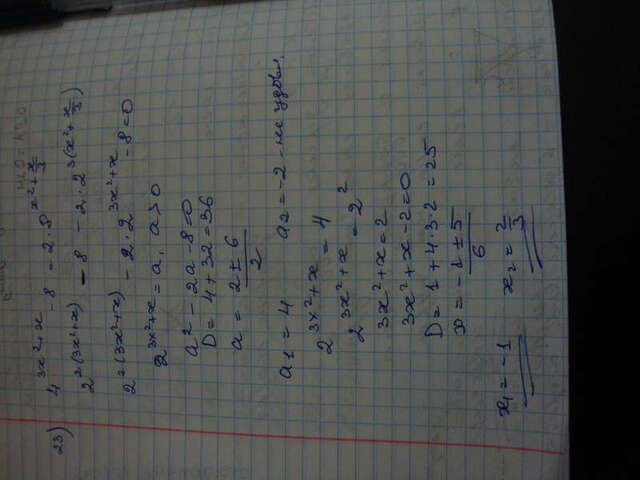 23) 4^(3x²+x) - 8 = 2·8^(x²+x/3)
2^(2(3x²+x)) - 8 - 2·2^(3(x²+x/3))
2^(2(3x²+x)) - 2·2^(3x²+x) - 8 = 0
2^(3x²+x) = a, a>0
a² - 2a - 8 = 0
D = 4 + 32 = 36
a = (2 ± 6)/2
a₁ = 4 a₂ = -2 - не удовл.
2^(3x²+x) = 4
2^(3x²+x) = 2²
3x²+x = 2
3x²+x-2=0
D = 1 + 4·3·2 = 25
x = (-1 ± 5)/6
x₁ = -1 x₂ = 2/3